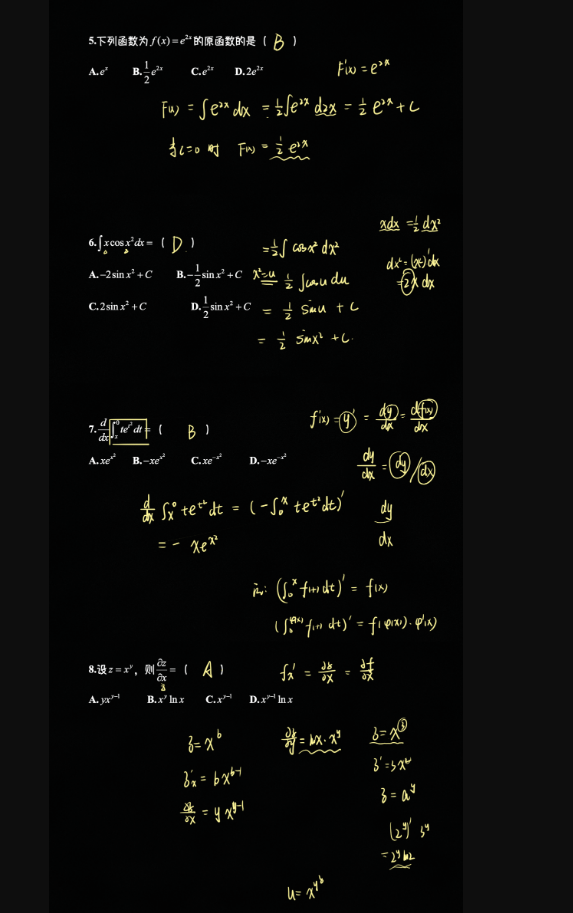 5.下列函数为 f(x)=e^{2x} 的原函数的是 ( B )
A.e^x B.\frac{1}{2}e^{2x} C.e^{2x} D.2e^{2x}
F'(x) = e^{2x}
F(x) = ∫e^{2x} dx = \frac{1}{2}∫e^{2x} d2x = \frac{1}{2} e^{2x} + C
当C=0 时 F(x) = \frac{1}{2} e^{2x}
6.∫x cos x² dx = ( D )
xdx = \frac{1}{2} dx²
= \frac{1}{2}∫ cos x² dx²
dx² = (x²)'dx
= 2x dx
A.-2sin x²+C B.-\frac{1}{2}sin x²+C
x²=u \frac{1}{2} ∫cosu du
C.2sin x²+C D.\frac{1}{2}sin x²+C
= \frac{1}{2} sinu + C
= \frac{1}{2} sinx² + C.
7.\frac{d}{dx}∫_x^0 te^{t²}dt = ( B )
f'(x) = y' = \frac{dy}{dx} = \frac{df(x)}{dx}
A.xe^{x²} B.-xe^{x²} C.xe^{-x²} D.-xe^{-x²}
\frac{dy}{dx} = dy/dx
\frac{d}{dx} ∫_x^0 te^{t²}dt = (-∫_0^x te^{t²}dt)'
\frac{dy}{dx}
= - xe^{x²}
(∫_0^x f(t) dt)' = f(x)
(∫_0^{φ(x)} f(t) dt)' = f(φ(x))·φ'(x)
8.设 z=x^y，则\frac{∂z}{∂x} = ( A )
f_x' = \frac{∂z}{∂x} = \frac{∂f}{∂x}
A.yx^{y-1} B.x^y ln x C.x^{y-1} D.x^{y-1} ln x
z=x^b
\frac{∂z}{∂y} = lnx·x^y
z'_x = bx^{b-1}
\frac{∂z}{∂x} = y x^{y-1}
z = a^y
(2^y)' 3^y
= 2^y ln2